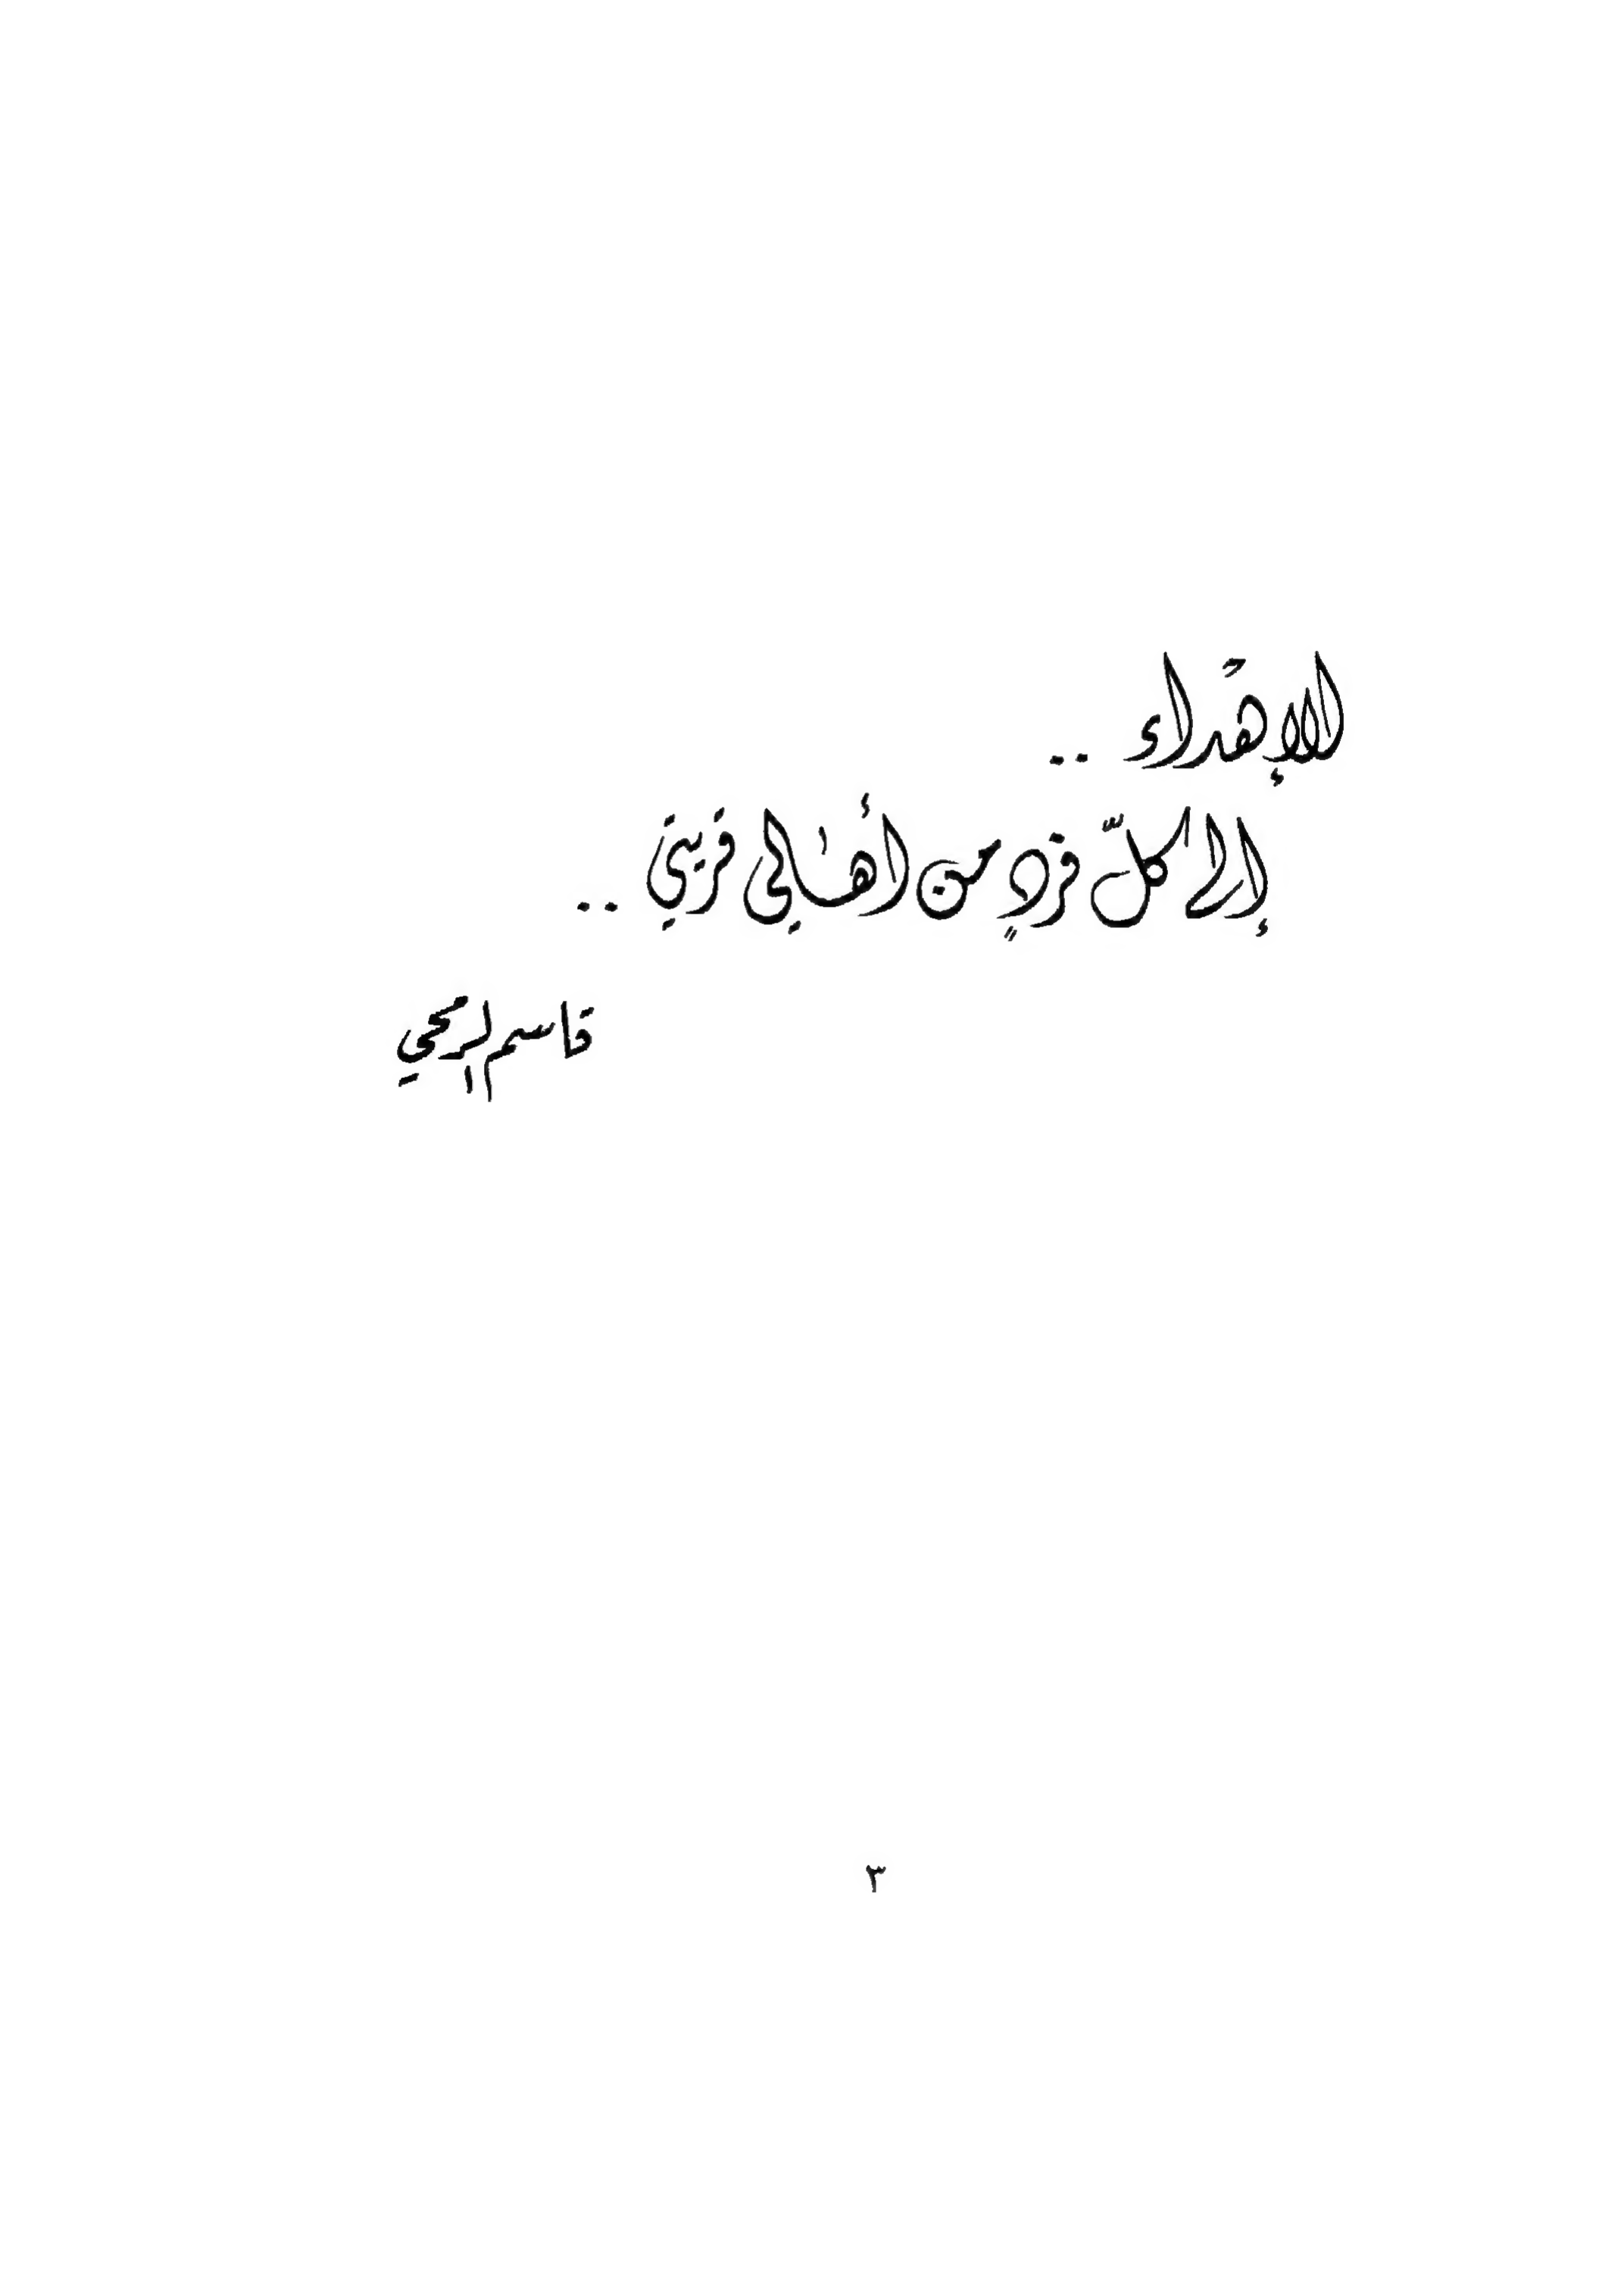 الإهداء ..
إلى كلّ فردٍ من أهالي قريتي ..
قاسم الرمحي
٣